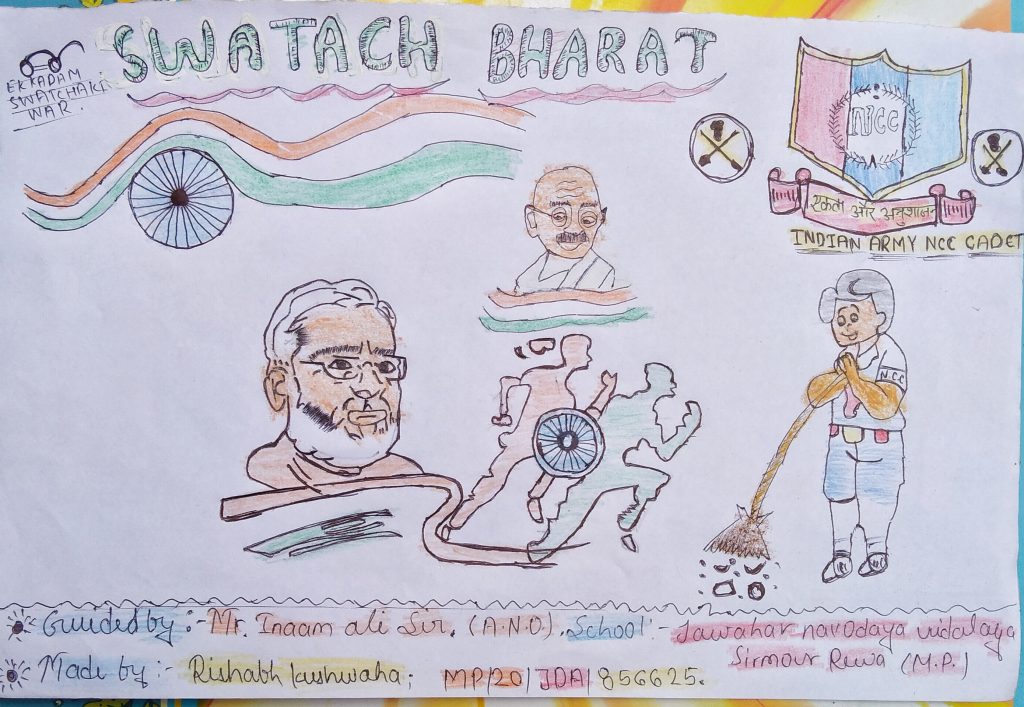 SWATACH BHARAT
EK KADAM
SWATCHAKI
WAR.
NCC
एकता और अनुशासन
INDIAN ARMY NCC CADET
N.C.C
Guided by :- Mr. Inaam ali Sir. (A.N.O). School :- Jawahar navodaya vidalaya
Sirmour Rewa (M.P.)
Made by :- Rishabh kushwaha; MP/20/JDA/856625.